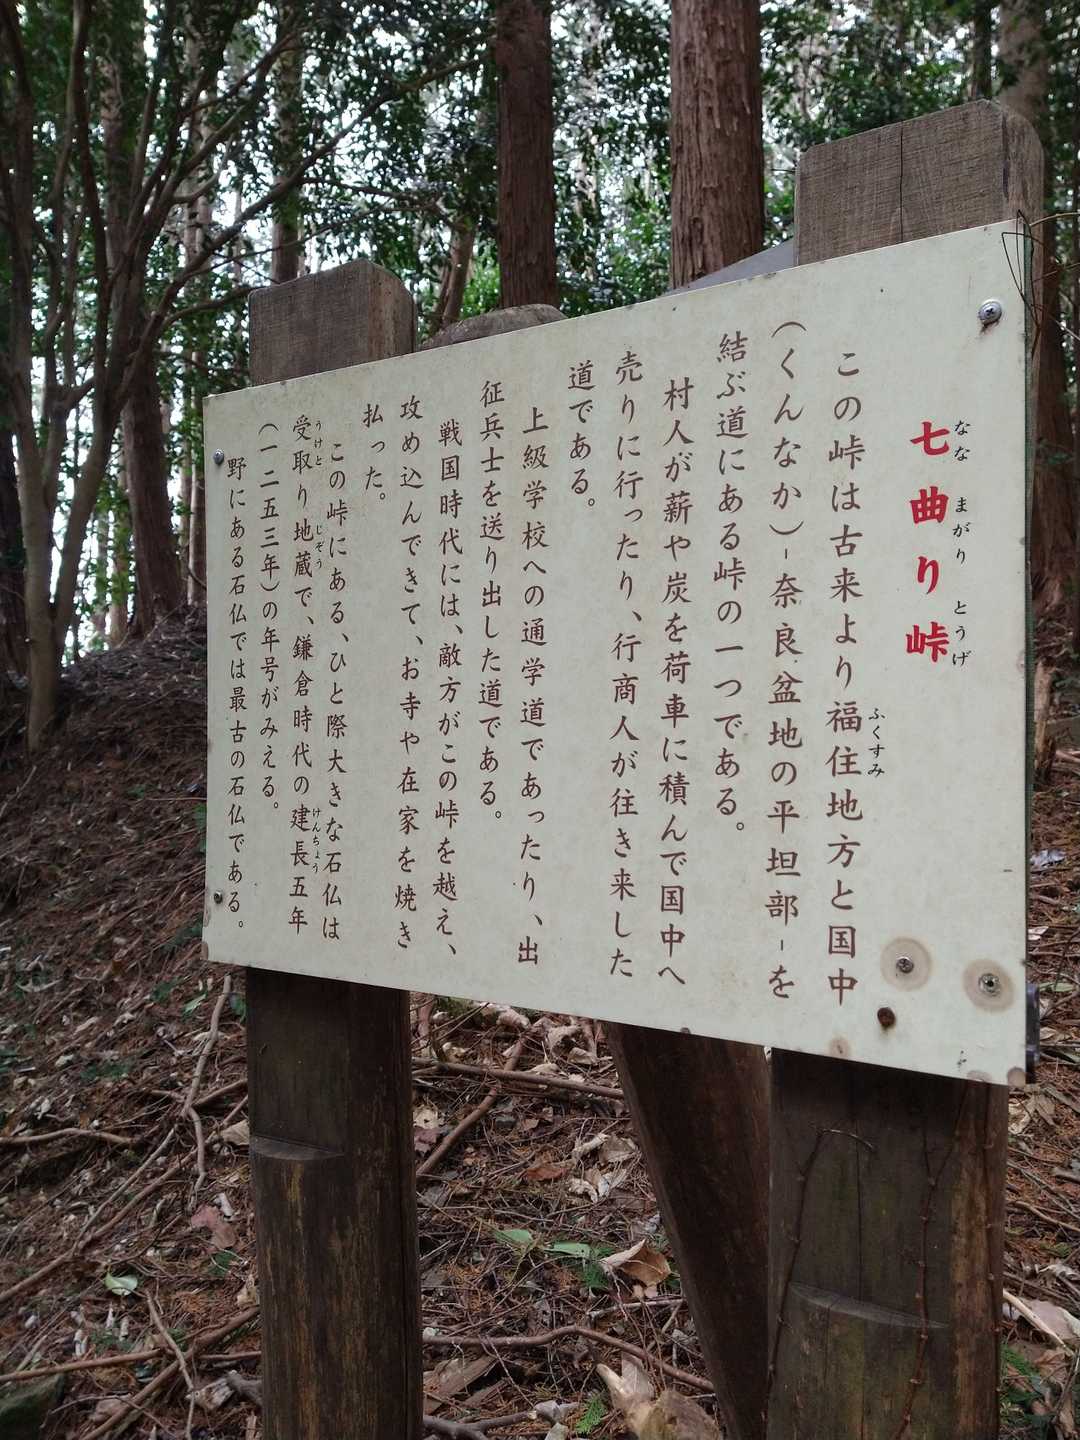 七曲り峠
なな まがり とうげ
この峠は古来より福住地方と国中
ふくすみ
(くんなか)-奈良盆地の平坦部-を
結ぶ道にある峠の一つである。
村人が薪や炭を荷車に積んで国中へ
売りに行ったり、行商人が往き来した
道である。
上級学校への通学道であったり、出
征兵士を送り出した道である。
戦国時代には、敵方がこの峠を越え、
攻め込んできて、お寺や在家を焼き
払った。
この峠にある、ひと際大きな石仏は
受取り地蔵で、鎌倉時代の建長五年
うけと じぞう けんちょう
(一二五三年)の年号がみえる。
野にある石仏では最古の石仏である。